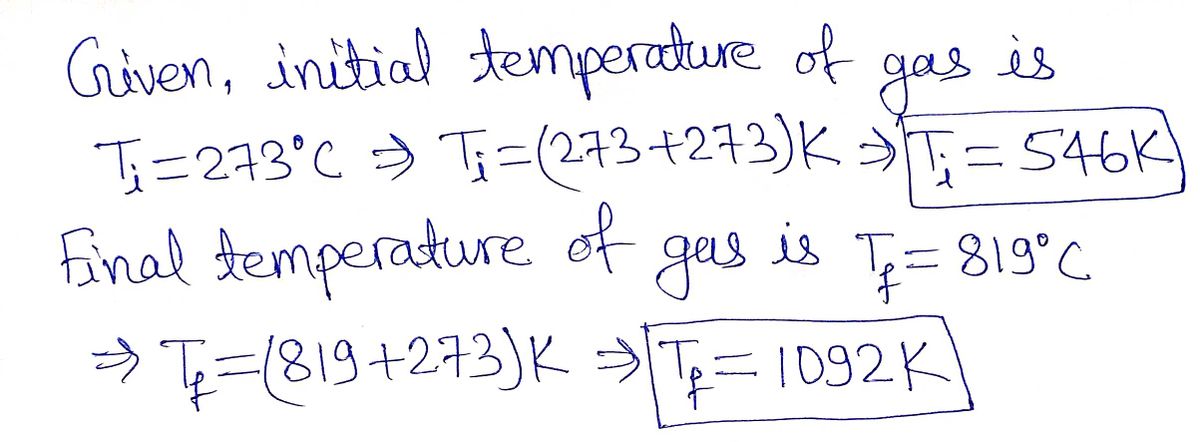 Given, initial temperature of gas is
Tᵢ=273°C ⇒ Tᵢ=(273+273)K ⇒ Tᵢ=546K
Final temperature of gas is T_f=819°C
⇒ T_f=(819+273)K ⇒ T_f=1092K